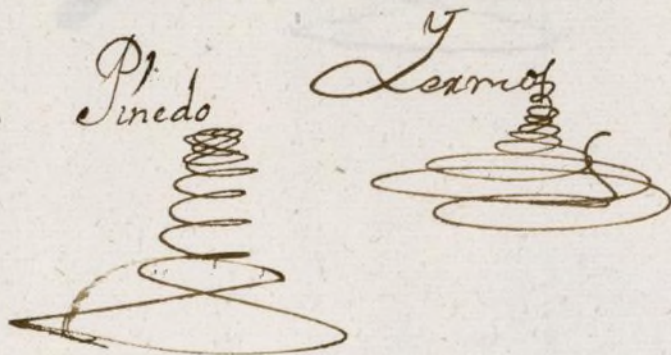 Pinedo
Y
Lermo